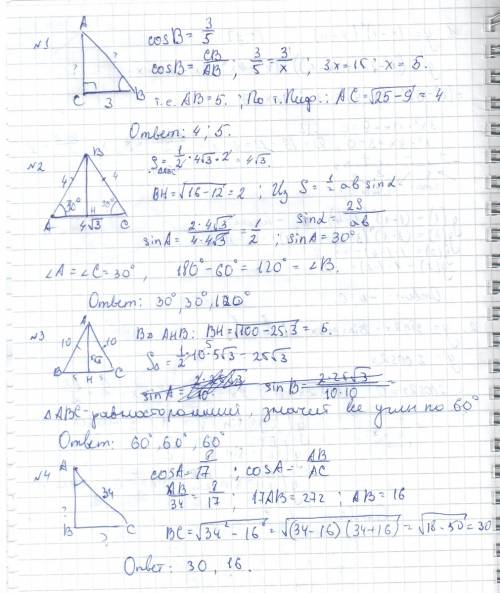 №1
A
? ?
C 3 B
cosB = 3/5
cosB = CB/AB ; 3/5 = 3/x ; 3x = 15 ; x = 5.
т.е. AB = 5. ; По т. Пиф.: AC = √(25 - 9) = 4
Ответ: 4 ; 5.
№2
B
4 4
30° 30°
A H C
4√3
S△ABC = 1/2 · 4√3 · 2 = 4√3.
BH = √(16 - 12) = 2 ; Из S = 1/2 ab sinα.
sinα = 2S/ab
sinA = 2·4√3/4·4√3 = 1/2 ; sinA = 30°
∠A = ∠C = 30°, 180° - 60° = 120° = ∠B.
Ответ: 30°, 30°, 120°
№3
A
10 10
B H C
5
В △ AHB: BH = √(100 - 25·3) = 5.
S△ = 1/2 · 10 · 5√3 = 25√3
sinA = 10 sinB = 2·25√3/10·10 =
△ABC - равносторонний, значит все углы по 60°
Ответ: 60°, 60°, 60°
№4
A
? 34
B ? C
cosA = 8/17 ; cosA = AB/AC
AB/34 = 8/17 ; 17AB = 272 ; AB = 16
BC = √(34² - 16²) = √((34-16)(34+16)) = √(18·50) = 30
Ответ: 30, 16.